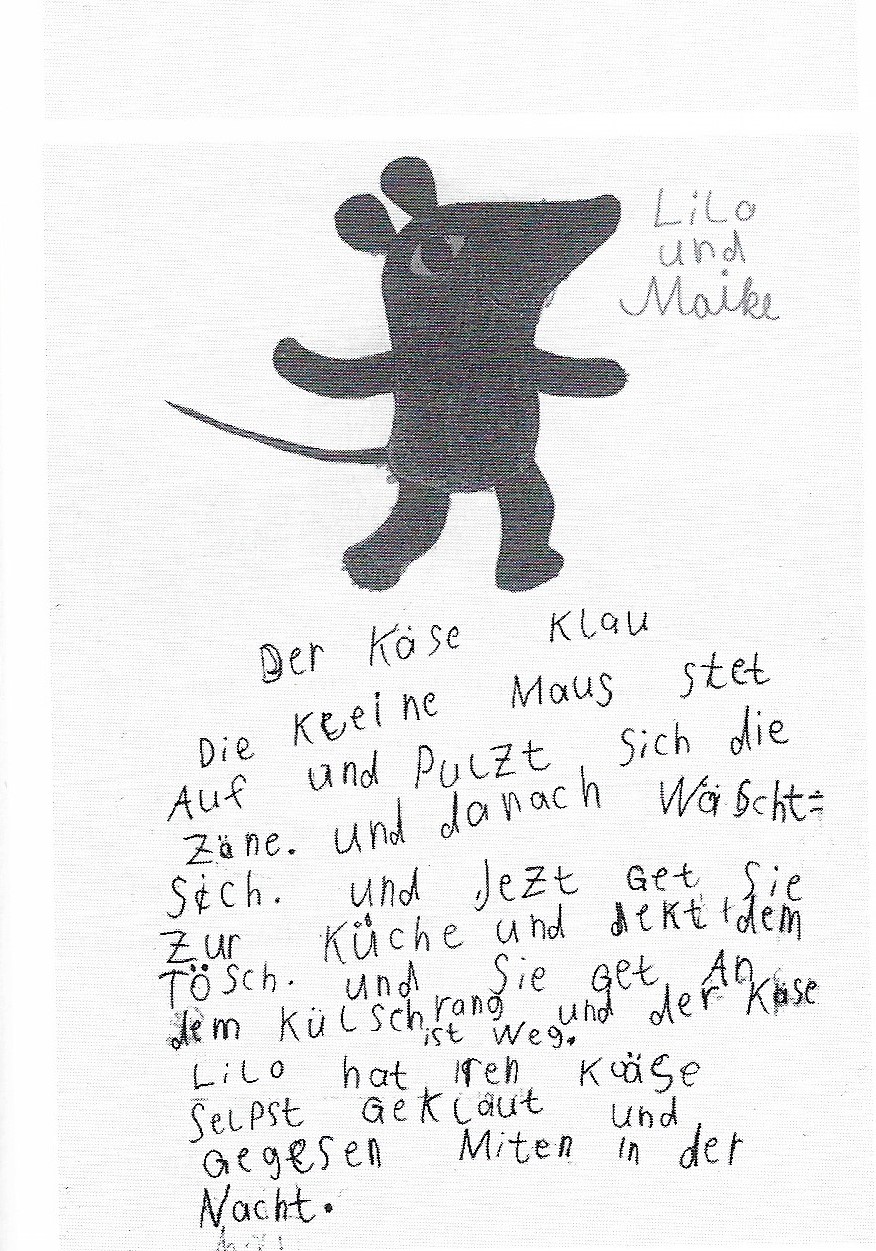 Lilo
und
Maike
Der Käse Klau
Die Kleine Maus stet
Auf und Putzt Sich die
Zäne. und danach Wäscht=
Sich. und Jezt Get Sie
Zur Küche und dekt dem
Tösch. und Sie Get An
dem Külschrang und der Käse
ist Weg.
Lilo hat iren Käse
Selpst Geklaut und
Gegesen Miten in der
Nacht.